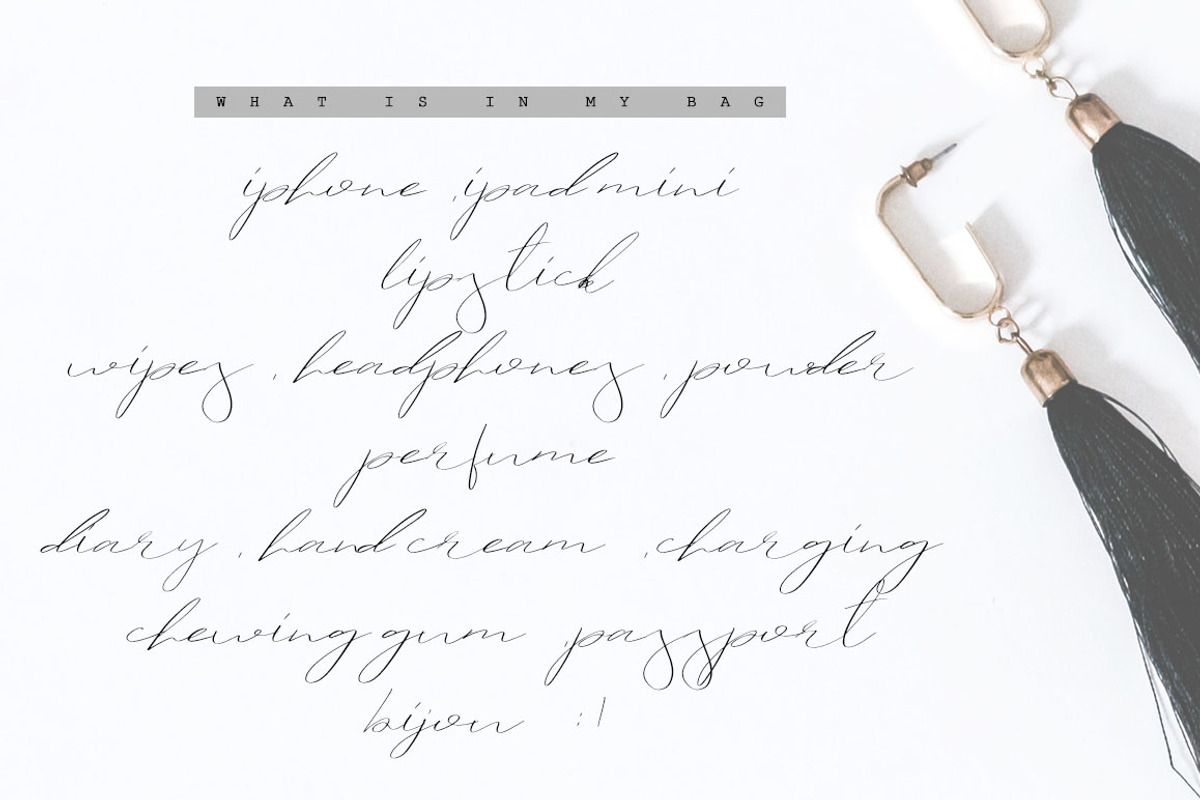 WHAT IS IN MY BAG
iphone .ipad mini
lipstick
wipes . headphones . powder
perfume
diary . hand cream .charging
chewing gum .passport
bijou :)